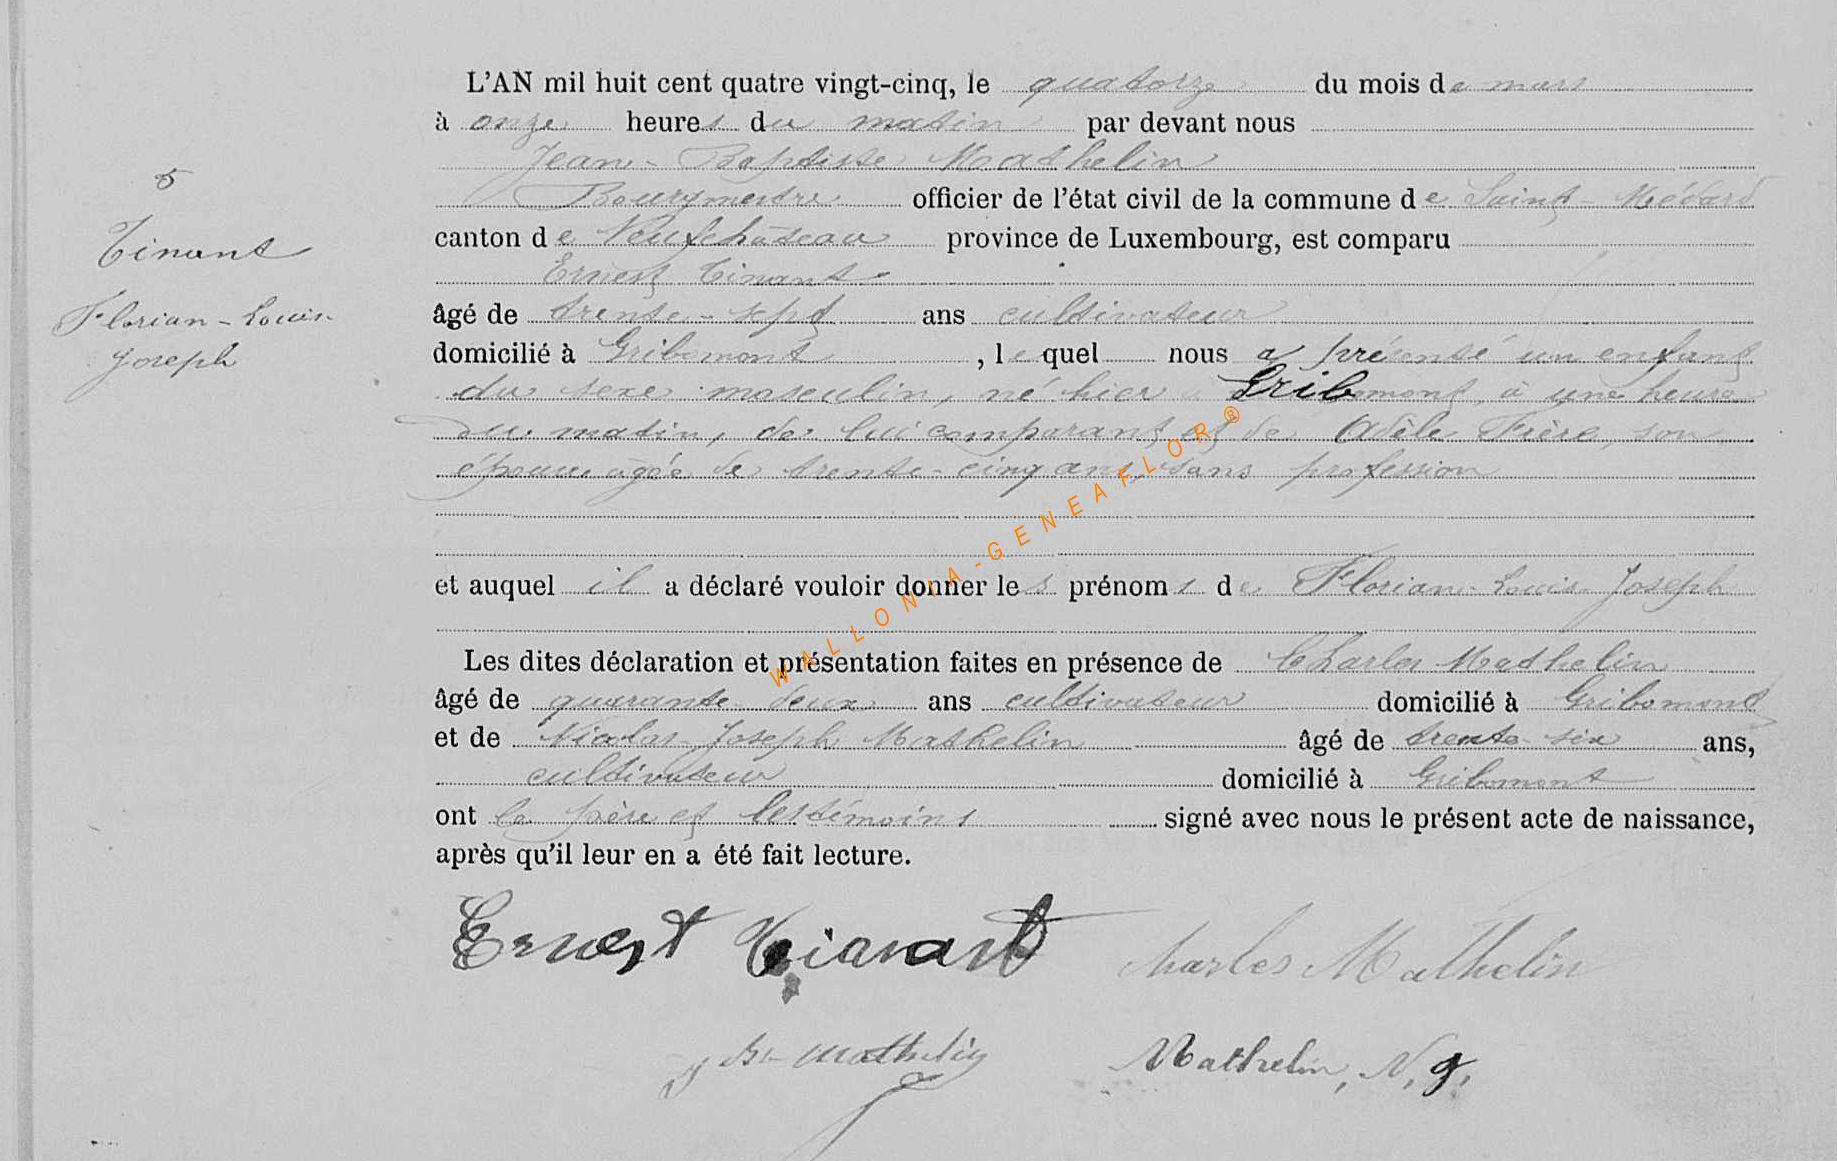 5
Tinant
Florian-Louis-
Joseph
L'AN mil huit cent quatre vingt-cinq, le quatorze du mois de mars
à onze heures du matin par devant nous
Jean-Baptiste Mathelin
Bourgmestre officier de l'état civil de la commune de Saint-Médard
canton de Neufchâteau province de Luxembourg, est comparu
Ernest Tinant
âgé de trente-sept ans cultivateur
domicilié à Gribomont, lequel nous a présenté un enfant
du sexe masculin, né hier à Gribomont, à une heure
du matin, de lui comparant et de Adèle Frère, son
épouse âgée de trente-cinq ans, sans profession
et auquel il a déclaré vouloir donner les prénoms de Florian-Louis-Joseph
Les dites déclaration et présentation faites en présence de Charles Mathelin
âgé de quarante-deux ans cultivateur domicilié à Gribomont
et de Nicolas-Joseph Mathelin âgé de trente-six ans,
cultivateur domicilié à Gribomont
ont le père et les témoins signé avec nous le présent acte de naissance,
après qu'il leur en a été fait lecture.
Ernest Tinant Charles Mathelin
J Bte Mathelin Mathelin, N. J.
WALLONIA-GENEAFLOR®